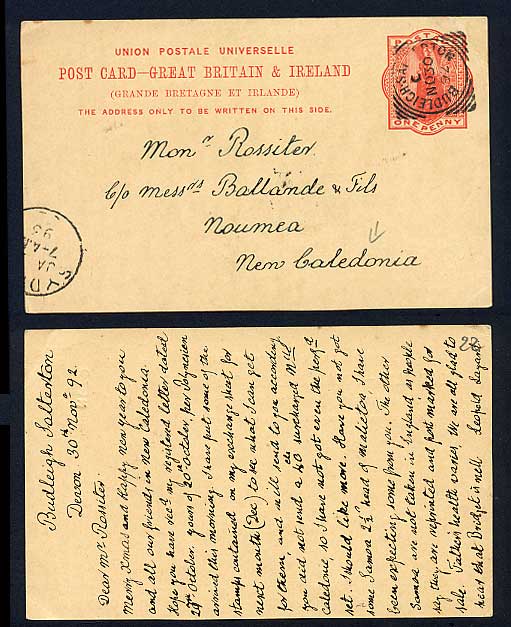 UNION POSTALE UNIVERSELLE
POST CARD—GREAT BRITAIN & IRELAND
(GRANDE BRETAGNE ET IRLANDE)
THE ADDRESS ONLY TO BE WRITTEN ON THIS SIDE.
ONE PENNY
BUDLEIGH SALTERTON
NO 30
92
Monr Rossiter
C/o Messrs Ballande & Fils
Noumea
New Caledonia
SYD
7-A
JA
93
28
Budleigh Salterton
Devon 30th Novr 92
Dear Mr Rossiter
Merry Xmas and Happy New year to you
and all our friends in New Caledonia.
Hope you have recd my registered letter dated
29th October. yours of 20th October, per Polynesien
arrived this morning. I have put some of the
stamps contained on my exchange sheet for
next month (Dec) to see what I can get
for them, and will send to you according
you did not send a 40 cts surcharged N.
Caledonie, so I have not got even the perf
set. I should like more. Have you not got
some Samoa 2½d head of Malietoa I have
been expecting some from you. The other
Samoa are not taken in England as people
say they are reprinted and post marked for
sale. Father's health varies. We are all glad to
hear that Bridget is well Leopold